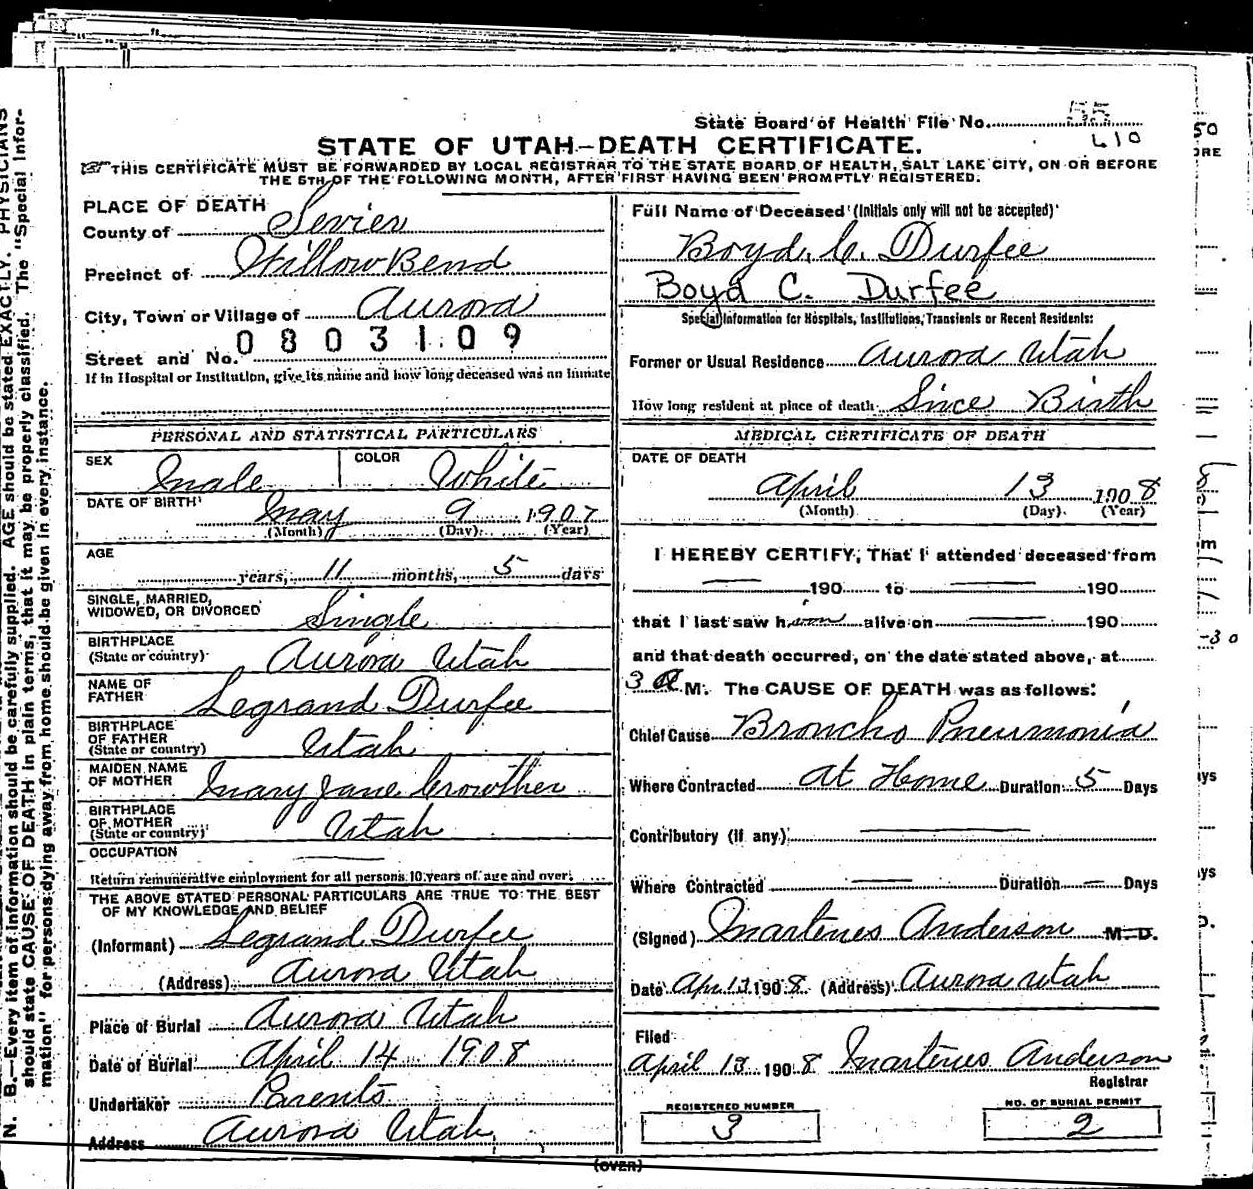 State Board of Health File No. 55
610
STATE OF UTAH—DEATH CERTIFICATE.
THIS CERTIFICATE MUST BE FORWARDED BY LOCAL REGISTRAR TO THE STATE BOARD OF HEALTH, SALT LAKE CITY, ON OR BEFORE
THE 5TH OF THE FOLLOWING MONTH, AFTER FIRST HAVING BEEN PROMPTLY REGISTERED.
PLACE OF DEATH
County of Sevier
Precinct of Willow Bend
City, Town or Village of Aurora
0803109
Street and No.
If in Hospital or Institution, give its name and how long deceased was an inmate
PERSONAL AND STATISTICAL PARTICULARS
SEX Male COLOR White
DATE OF BIRTH
May 9 1907
(Month) (Day) (Year)
AGE
years, 11 months, 5 days
SINGLE, MARRIED,
WIDOWED, OR DIVORCED Single
BIRTHPLACE
(State or country) Aurora Utah
NAME OF
FATHER Legrand Durfee
BIRTHPLACE
OF FATHER
(State or country) Utah
MAIDEN NAME
OF MOTHER Mary Jane Crowther
BIRTHPLACE
OF MOTHER
(State or country) Utah
OCCUPATION
Return remunerative employment for all persons 10 years of age and over.
THE ABOVE STATED PERSONAL PARTICULARS ARE TRUE TO THE BEST
OF MY KNOWLEDGE AND BELIEF
(Informant) Legrand Durfee
(Address) Aurora Utah
Place of Burial Aurora Utah
Date of Burial April 14 1908
Undertaker Parents
Address Aurora Utah
Full Name of Deceased (Initials only will not be accepted)
Boyd. C. Durfee
Boyd C. Durfee
Special Information for Hospitals, Institutions, Transients or Recent Residents:
Former or Usual Residence Aurora Utah
How long resident at place of death Since Birth
MEDICAL CERTIFICATE OF DEATH
DATE OF DEATH
April 13 1908
(Month) (Day) (Year)
I HEREBY CERTIFY, That I attended deceased from
— 190 to — 190
that I last saw h alive on — 190
and that death occurred, on the date stated above, at
3 A M. The CAUSE OF DEATH was as follows:
Chief Cause Broncho Pneumonia
Where Contracted At Home Duration 5 Days
Contributory (if any) —
Where Contracted — Duration — Days
(Signed) Martenes Anderson M. D.
Date Apr 13 1908 (Address) Aurora Utah
Filed
April 13 1908 Martenes Anderson
Registrar
REGISTERED NUMBER
3
NO. OF BURIAL PERMIT
2
(OVER)
N. B.—Every item of information should be carefully supplied. AGE should be stated EXACTLY. PHYSICIANS
should state CAUSE OF DEATH in plain terms, that it may be properly classified. The "Special Infor-
mation" for persons dying away from home should be given in every instance.